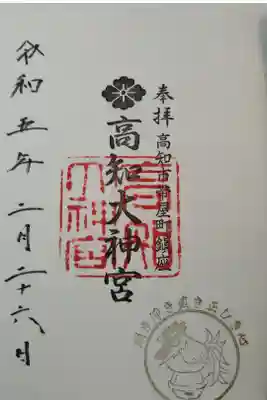 奉拝 高知市帯屋町鎮座
高知大神宮
高知大神宮
令和五年二月二十六日